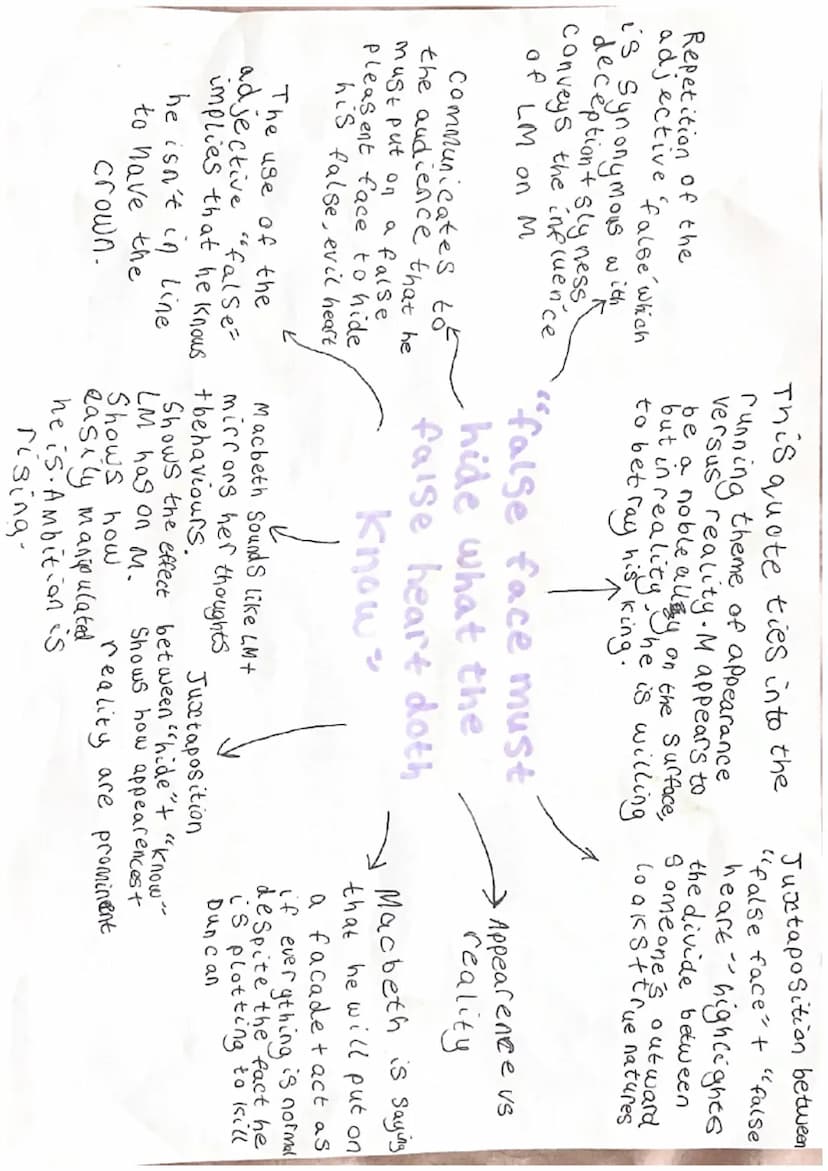 Repetition of the
adjective 'false' which
is synonymous with
deception + slyness
conveys the influence
of LM on M
This quote ties into the
running theme of appearance
versus reality. M appears to
be a noble ally on the surface,
but in reality, he is willing
to betray his king.
Juxtaposition between
"false face" + "false
heart" highlights
the divide between
someone's outward
looks + true natures
communicates to
the audience that he
must put on a false
pleasent face to hide
his false, evil heart
"false face must
hide what the
false heart doth
know"
Appearence vs
reality
The use of the
adjective "false"
implies that he knows
he isn't in line
to have the
crown.
Macbeth sounds like LM +
mirrors her thoughts
+ behaviours.
Shows the effect
LM has on M.
Shows how
easily manipulated
he is. Ambition is
rising.
Juxtaposition
between "hide" + "know"
shows how appearences +
reality are prominent
Macbeth is saying
that he will put on
a facade + act as
if everything is normal
despite the fact he
is plotting to kill
Duncan